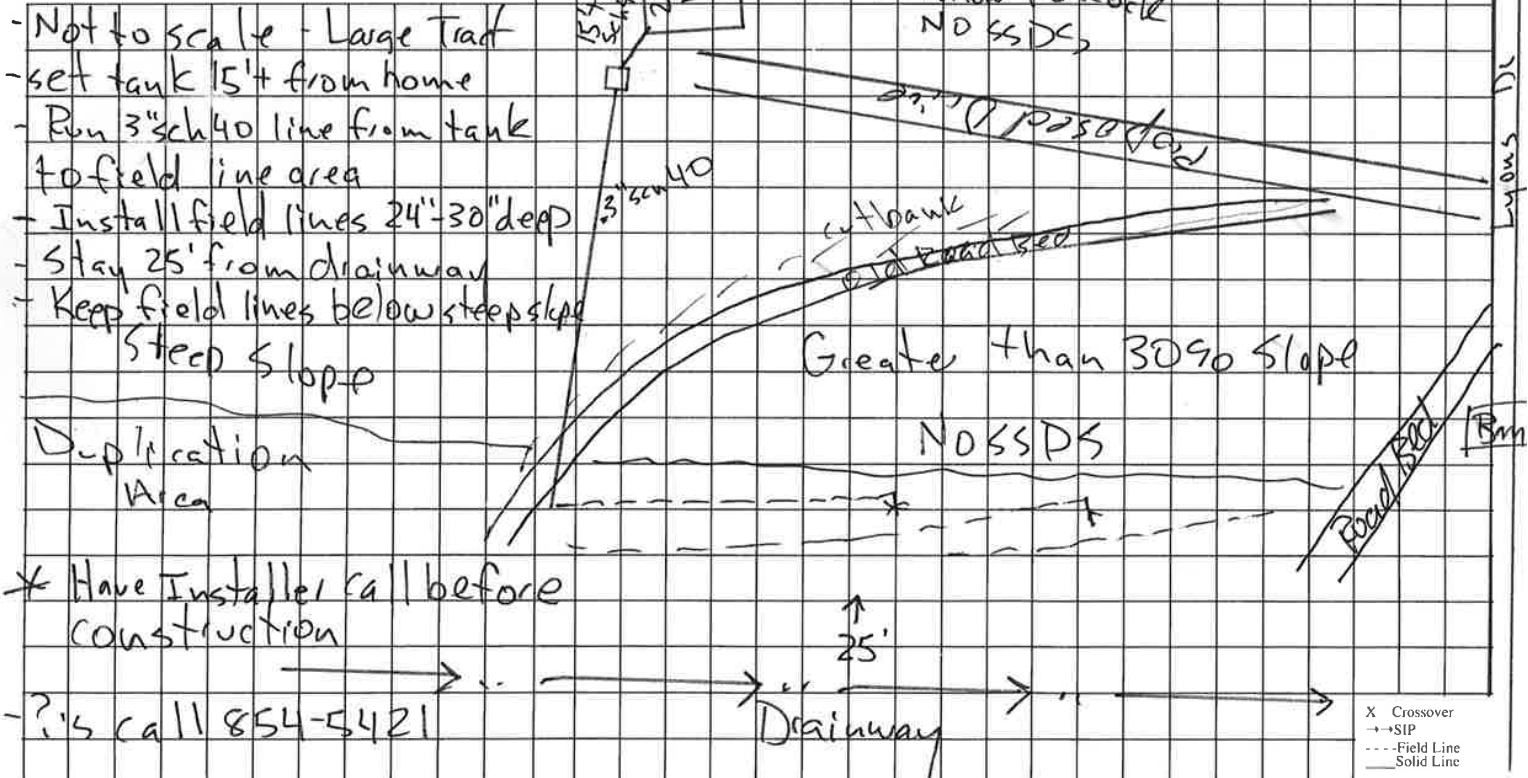 - Not to scale - Large Tract
- set tank 15'+ from home
- Run 3"sch 40 line from tank
to field line area
- Install field lines 24"-30" deep
- Stay 25' from drainway
- Keep field lines below steep slope
Steep Slope
Duplication
Area
* Have Installer call before
construction
- ?'s call 854-5421
NO SSDS
Proposed Drive
Lyons Dr
3"sch 40
cutbank
old Road Bed
Greater than 30% Slope
NO SSDS
Road Bed
BM
25'
Drainway
X Crossover
→→SIP
----Field Line
___Solid Line